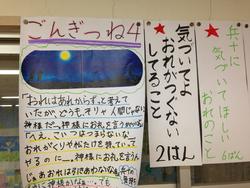 ごんぎつね4
「おれはあれからずっと考えて
いたが、どうも、オリャ人間じゃない
神様だ。神様におれを言うがいい。」
「へえ、こいつはつまらないな。
おれがくりや松たけを持っていって
やるのに、神様におれを言うん
じゃあおれは
気づいてよ
おれがつぐない
してること
2はん
兵十に
気づいてほしい
おれのこと
6ぱん